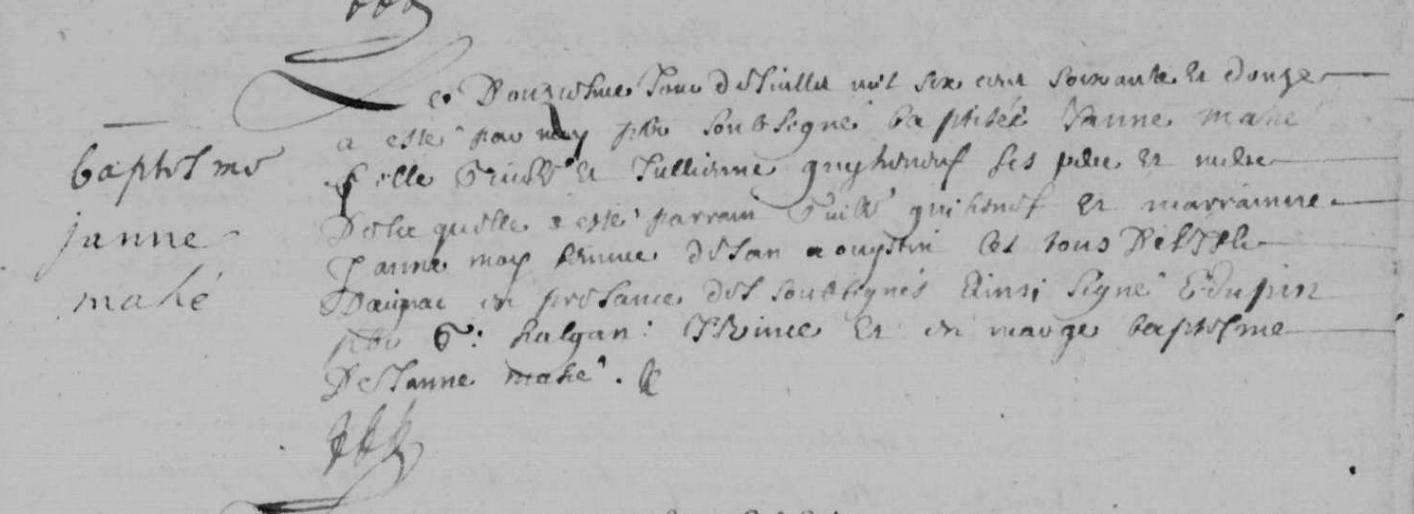 baptesme
janne
mahé
Le Douziesme Jour de Juillet mil six cent soixante et douze
a esté par moy pbre soubsigné baptisée Janne Mahé
fille Guill et Jullienne guyheneuf ses pere et mere
De laquelle a esté parrain Guill guiheneuf et marrainne
Janne moy femme de Jan aougstin les tous De
en presance des soubsignés Ainsi signé E dupin
pbre G: halgan: et en marge baptesme
De Janne mahé.